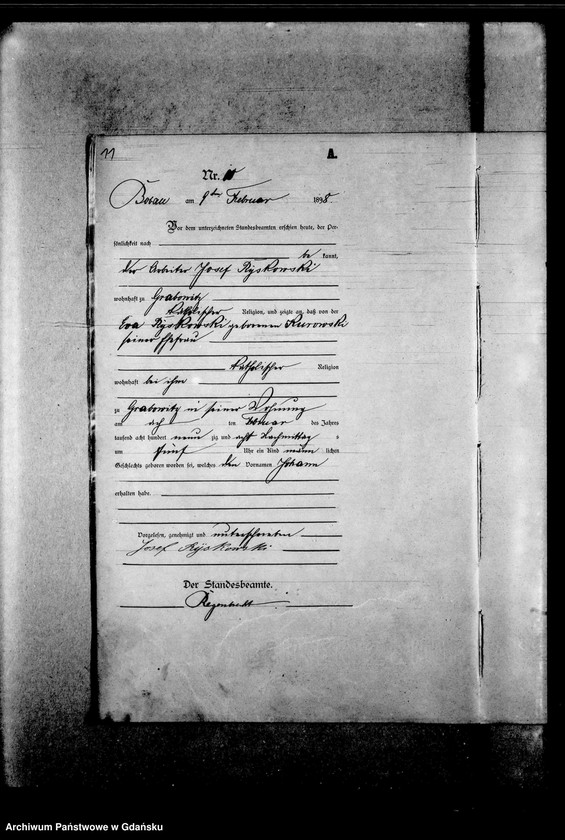 11
A.
Nr. 10
am 9ten Februar 1898
Vor dem unterzeichneten Standesbeamten erschien heute, der Per-
sönlichkeit nach
be kannt,
der Arbeiter Josef Ryskowski
wohnhaft zu Grabowitz
katholischer Religion, und zeigte an, daß von der
Eva Ryskowski geborenen Kurowski
seiner Ehefrau
katholischer Religion
wohnhaft bei ihm
zu Grabowitz in seiner Wohnung
am acht ten Februar des Jahres
tausend acht hundert neun zig und acht Nachmittag s
um fünf Uhr ein Kind männ lichen
Geschlechts geboren worden sei, welches den Vornamen Johann
erhalten habe.
Vorgelesen, genehmigt und unterschrieben
Josef Ryskowski
Der Standesbeamte.
Archiwum Państwowe w Gdańsku